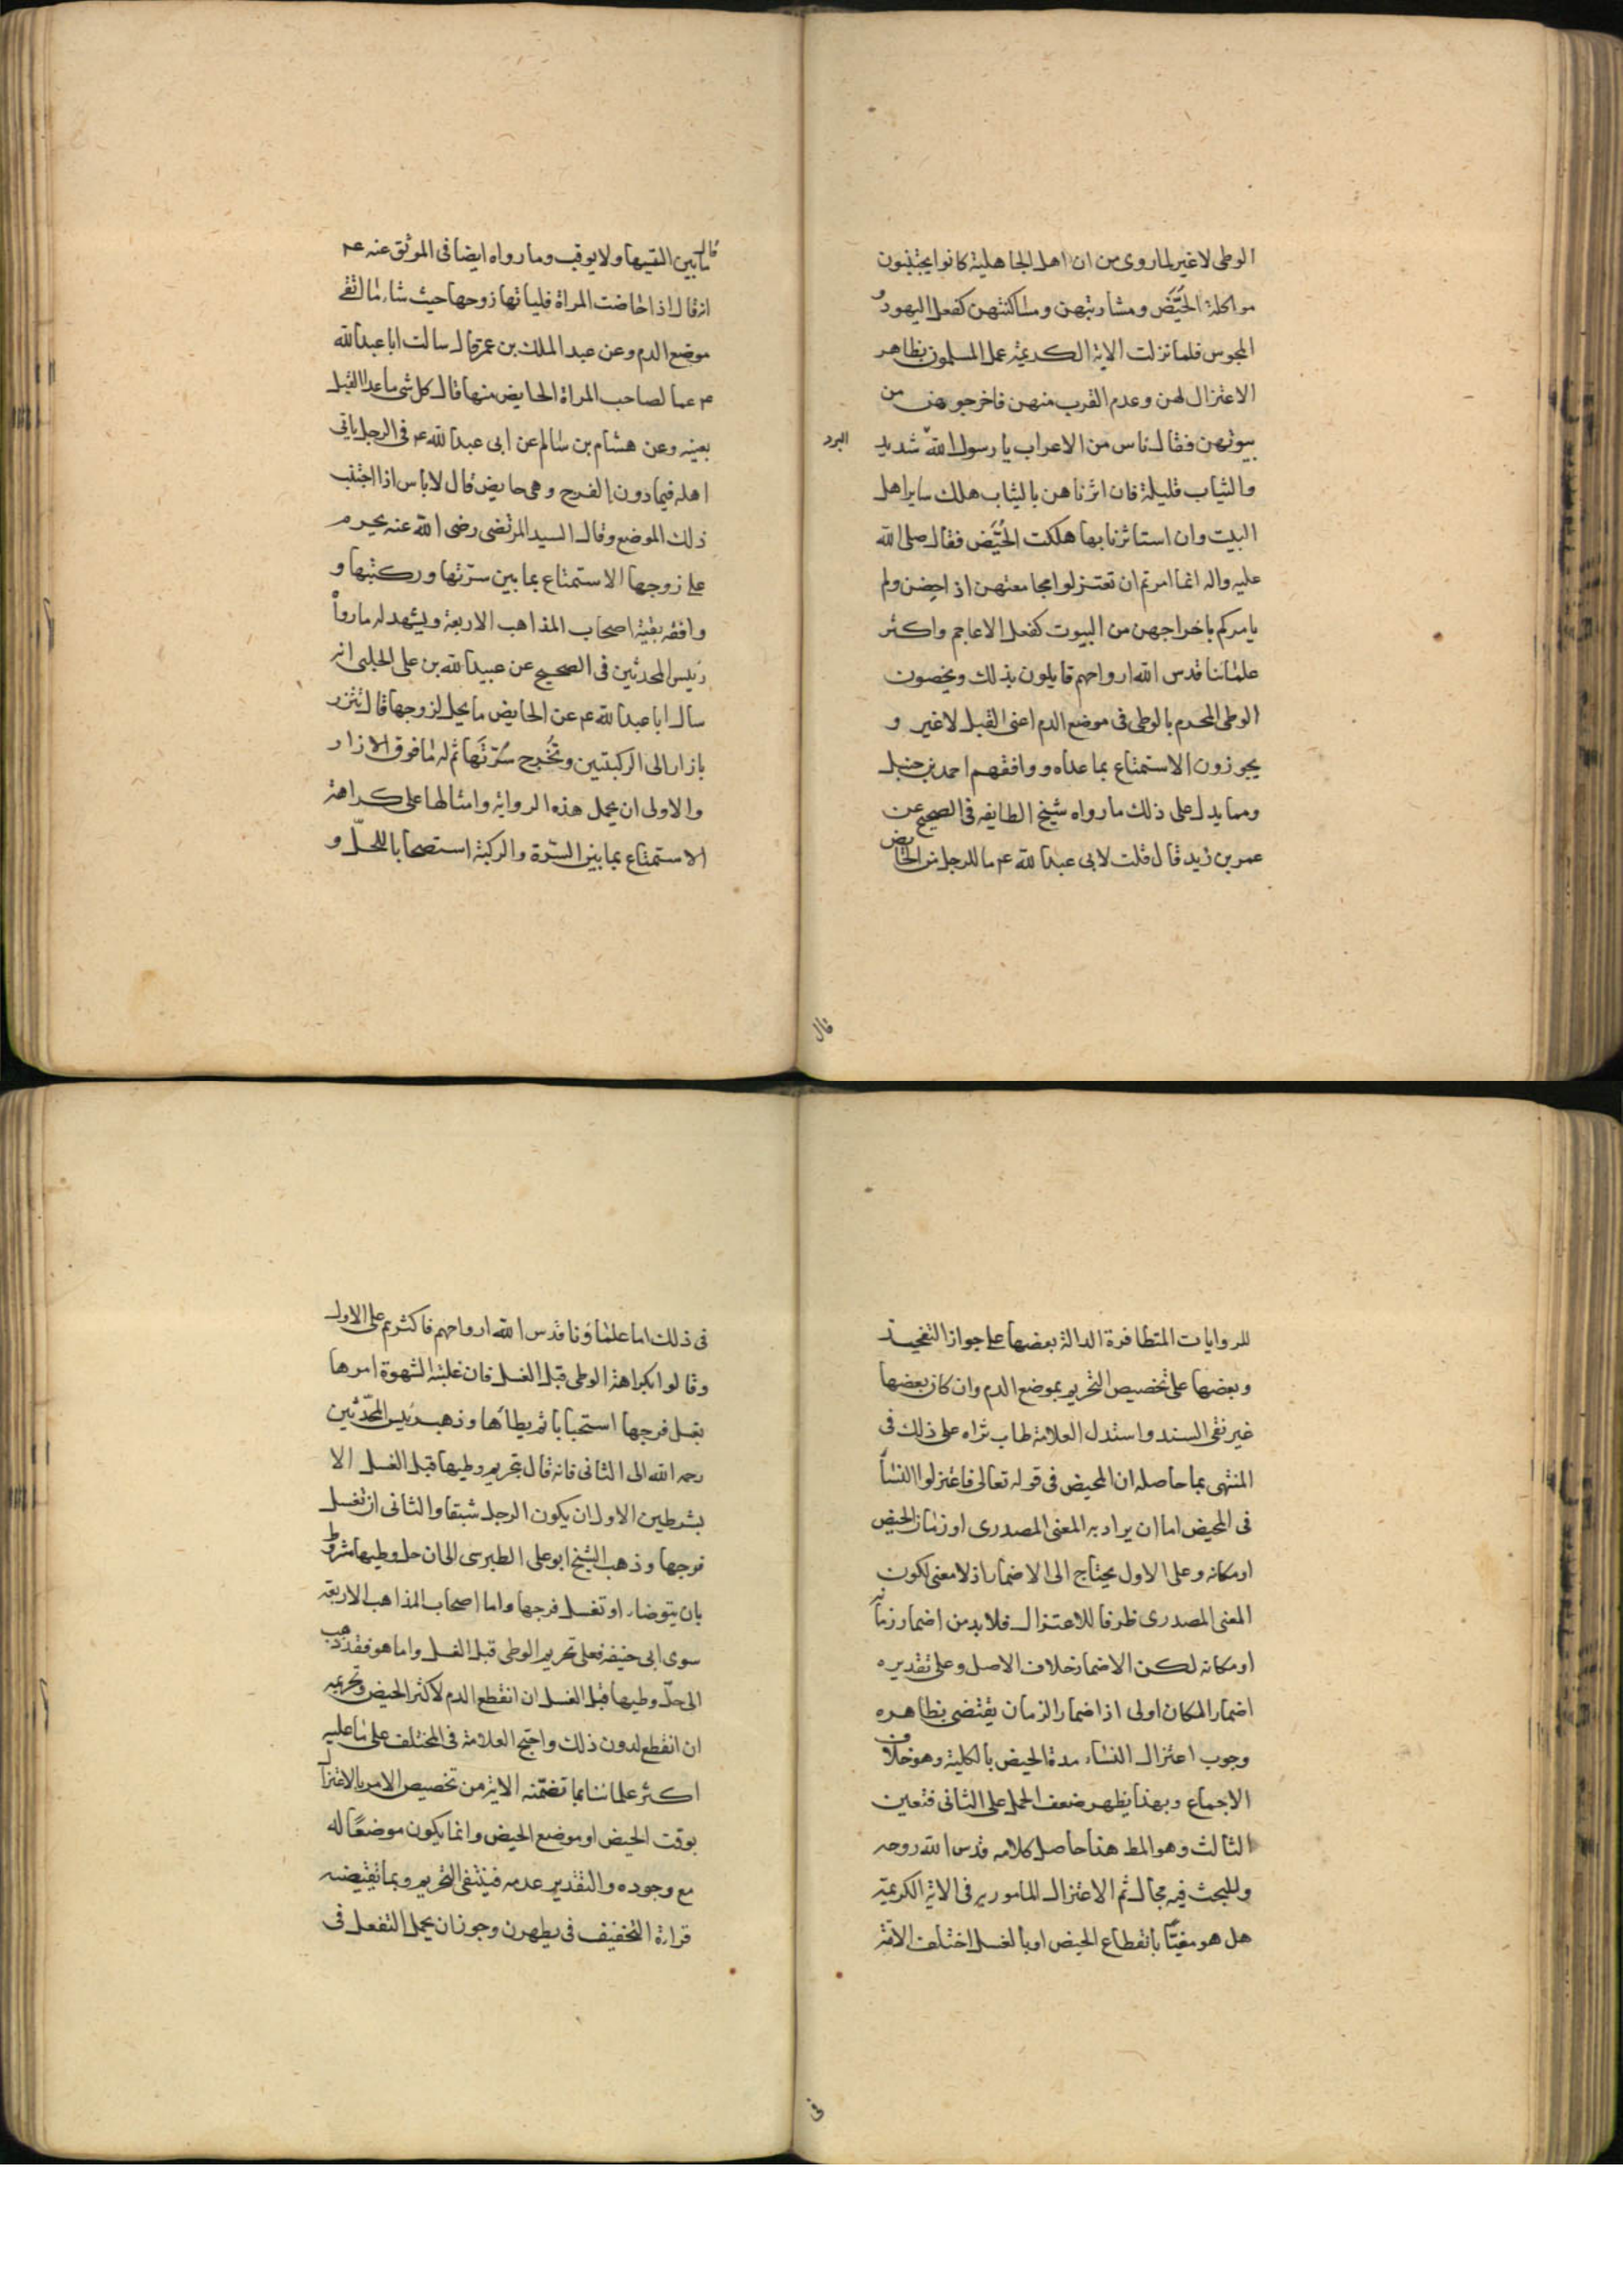 الوطى لا غير لما روى من ان اهل الجاهلية كانوا يجتنبون
مواكلة الحُيَّض ومشاربتهن ومساكنتهن كفعل اليهود و
المجوس فلما نزلت الاية الكريمة عمل المسلمون بظاهر
الاعتزال لهن وعدم القرب منهن فاخرجوهن من
بيوتهن فقال ناس من الاعراب يا رسول الله شديد
البرد
والثياب قليلة فان اثرناهن بالثياب هلك ساير اهل
البيت وان استاثرنا بها هلكت الحُيَّض فقال صلى الله
عليه واله انما امرتم ان تعتزلوا مجامعتهن اذا حضن ولم
يامركم باخراجهن من البيوت كفعل الاعاجم واكثر
علمائنا قدس الله ارواحهم قايلون بذلك ويخصون
الوطى المحرم بالوطى فى موضع الدم اعنى القبل لا غير و
يجوزون الاستمتاع بما عداه ووافقهم احمد بن حنبل
ومما يدل على ذلك ما رواه شيخ الطايفه فى الصحيح عن
عمر بن زيد قال قلت لابى عبد الله عم ما للرجل من الحايض
قال
قال ما بين اليتيها ولا يوقب وما رواه ايضا فى الموثق عنه عم
انه قال اذا حاضت المراة فلياتها زوجها حيث شاء ما اتقى
موضع الدم وعن عبد الملك بن عمرو قال سالت ابا عبد الله
عم عما لصاحب المراة الحايض منها قال كل شى ما عدا القبل
بعينه وعن هشام بن سالم عن ابى عبد الله عم فى الرجل ياتى
اهله فيما دون الفرج وهى حايض قال لا باس اذا اجتنب
ذلك الموضع وقال السيد المرتضى رضى الله عنه يحرم
على زوجها الاستمتاع بما بين سرّتها وركبتها و
وافقه بقية اصحاب المذاهب الاربعة ويشهد له ما رواه
رئيس المحدثين فى الصحيح عن عبيد الله بن على الحلبى انه
سال ابا عبد الله عم عن الحايض ما يحل لزوجها قال تتزر
بازار الى الركبتين وتُخْرِج سُرّتَها ثم له ما فوق الازار
والاولى ان يحمل هذه الرواية وامثالها على كراهة
الاستمتاع بما بين السّرة والركبة استصحابا للحلّ و
للروايات المتظافرة الدالة بعضها على جواز التفخيذ
وبعضها على تخصيص التحريم بموضع الدم وان كان بعضها
غير نقى السند واستدل العلامة طاب ثراه على ذلك فى
المنتهى بما حاصله ان المحيض فى قوله تعالى فاعتزلوا النساء
فى المحيض اما ان يراد به المعنى المصدرى او زمان الحيض
او مكانه وعلى الاول يحتاج الى الاضمار اذ لا معنى لكون
المعنى المصدرى ظرفا للاعتزال فلا بد من اضمار زمانه
او مكانه لكن الاضمار خلاف الاصل وعلى تقديره
اضمار المكان اولى اذ اضمار الزمان يقتضى بظاهره
وجوب اعتزال النساء مدة الحيض بالكلية وهو خلاف
الاجماع وبهذا يظهر ضعف الحمل على الثانى فتعين
الثالث وهو المط هذا حاصل كلامه قدس الله روحه
وللبحث فيه مجال ثم الاعتزال المامور به فى الاية الكريمة
هل هو مغيّا بانقطاع الحيض او بالغسل اختلف الامّة
فى
فى ذلك اما علماؤنا قدس الله ارواحهم فاكثرهم على الاول
وقالوا بكراهة الوطى قبل الغسل فان غلبته الشهوة امرها
بغسل فرجها استحبابا ثم يطأها وذهب رئيس المحدّثين
رحمه الله الى الثانى فانه قال بتحريم وطيها قبل الغسل الا
بشرطين الاول ان يكون الرجل شبقا والثانى ان تغسل
فرجها وذهب الشيخ ابو على الطبرسى الى ان حل وطيها مشروط
بان يتوضاء او تغسل فرجها واما اصحاب المذاهب الاربعة
سوى ابى حنيفه فعلى تحريم الوطى قبل الغسل واما هو فقد ذهب
الى حلّ وطيها قبل الغسل ان انقطع الدم لاكثر الحيض وتحريمه
ان انقطع لدون ذلك واحتج العلامة فى المختلف على ما عليه
اكثر علمائنا بما تضمّنه الاية من تخصيص الامر بالاعتزال
بوقت الحيض او موضع الحيض وانما يكون موضعًا له
مع وجوده والتقدير عدمه فينتفى التحريم وبما تقتضيه
قراءة التخفيف فى يطهرن وجوز ان يحمل التفعل فى